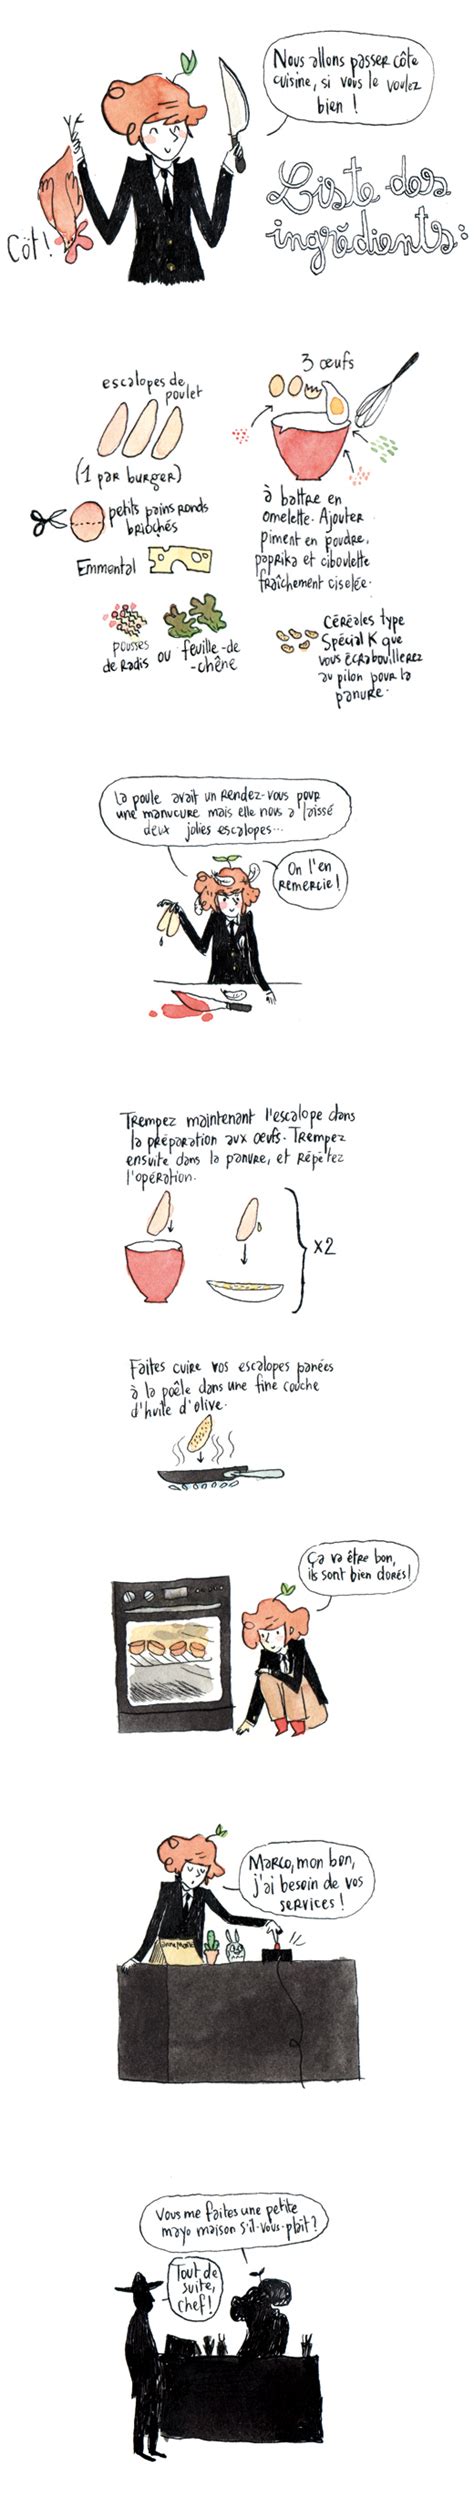 Nous allons passer côté
cuisine, si vous le voulez
bien !
Côt !
Liste des
ingrédients :
escalopes de
poulet
(1 par burger)
petits pains ronds
briochés
Emmental
pousses
de radis
ou
feuille-de
-chêne
3 œufs
à battre en
omelette. Ajouter
piment en poudre,
paprika et ciboulette
fraîchement ciselée.
Céréales type
Spécial K que
vous écrabouillerez
au pilon pour la
panure.
La poule avait un rendez-vous pour
une manucure mais elle nous a laissé
deux jolies escalopes...
On l'en
remercie !
Trempez maintenant l'escalope dans
la préparation aux œufs. Trempez
ensuite dans la panure, et répétez
l'opération.
x2
Faites cuire vos escalopes panées
à la poêle dans une fine couche
d'huile d'olive.
Ça va être bon,
ils sont bien dorés !
Marco, mon bon,
j'ai besoin de vos
services !
Vous me faites une petite
mayo maison s'il-vous-plaît ?
Tout de
suite,
chef !